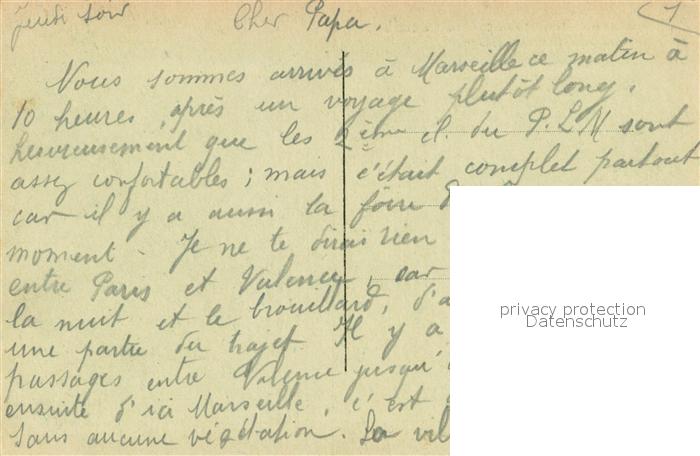 Jeudi soir
Cher Papa.
1
Nous sommes arrivés à Marseille ce matin à
10 heures, après un voyage plutôt long,
heureusement que les 2ème cl. du P.L.M sont
assez confortables ; mais c'était complet partout
car il y a aussi la foire
moment. Je ne te dirai rien
entre Paris et Valence, car
la nuit et le brouillard,
une partie du trajet. Il y a
passages entre Valence jusqu'
ensuite d'ici Marseille, c'est
sans aucune végétation. La vil
privacy protection
Datenschutz